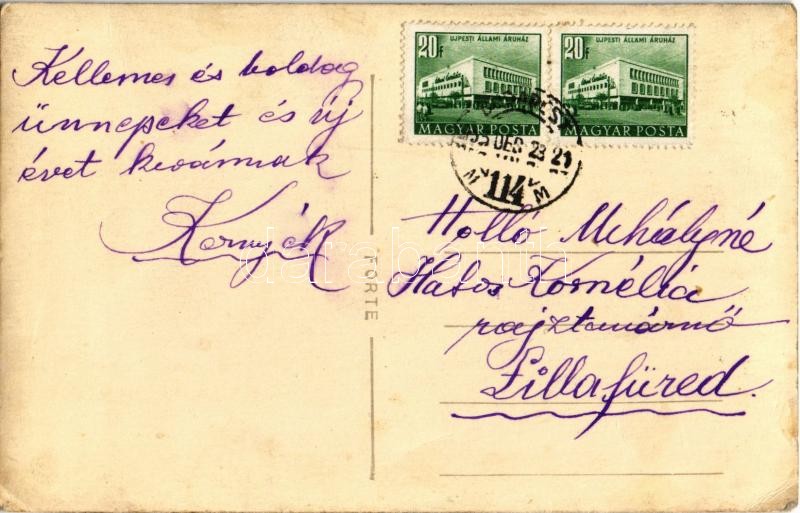 Kellemes és boldog
ünnepeket és új
évet kivánnak
Kornyék
FORTE
20f
UJPESTI ÁLLAMI ÁRUHÁZ
MAGYAR POSTA
20f
UJPESTI ÁLLAMI ÁRUHÁZ
MAGYAR POSTA
DEC 23 21
114
Holló Mihályné
Hatos Kornélia
rajztanárnő
Lillafüred.
darabanth